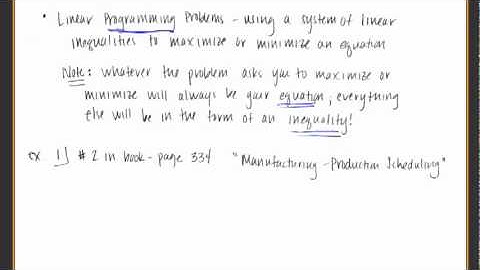 • Linear Programming Problems - using a system of linear
inequalities to maximize or minimize an equation
Note: whatever the problem asks you to maximize or
minimize will always be your equation; everything
else will be in the form of an inequality!
ex 1] #2 in book - page 334 "Manufacturing - Production Scheduling"